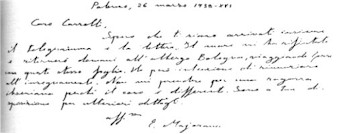 Palermo, 26 marzo 1938-XVI
Caro Carrelli,
Spero che ti siano arrivati insieme
il telegramma e la lettera. Il mare mi ha rifiutato
e ritornerò domani all'Albergo Bologna, viaggiando forse
con questo stesso foglio. Ho però intenzione di rinunciare
all'insegnamento. Non mi prendere per una ragazza
ibseniana perché il caso è differente. Sono a tua di-
sposizione per ulteriori dettagli.
aff.mo
E. Majorana